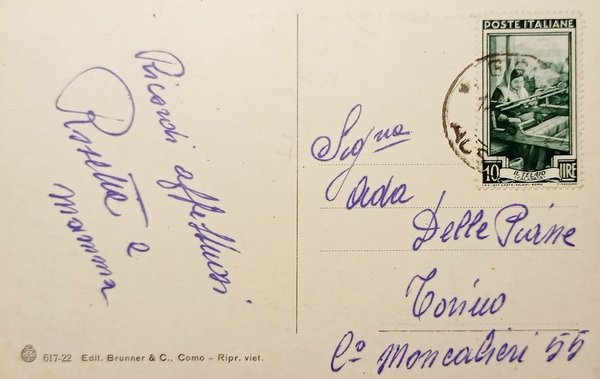 Ricordi affettuosi
Rosetta e
mamma
617-22 Edit. Brunner & C., Como – Ripr. viet.
POSTE ITALIANE
IL TELAIO
CALABRIA
10 LIRE
Signa
Ada
Delle Piane
Torino
Co Moncalieri 55